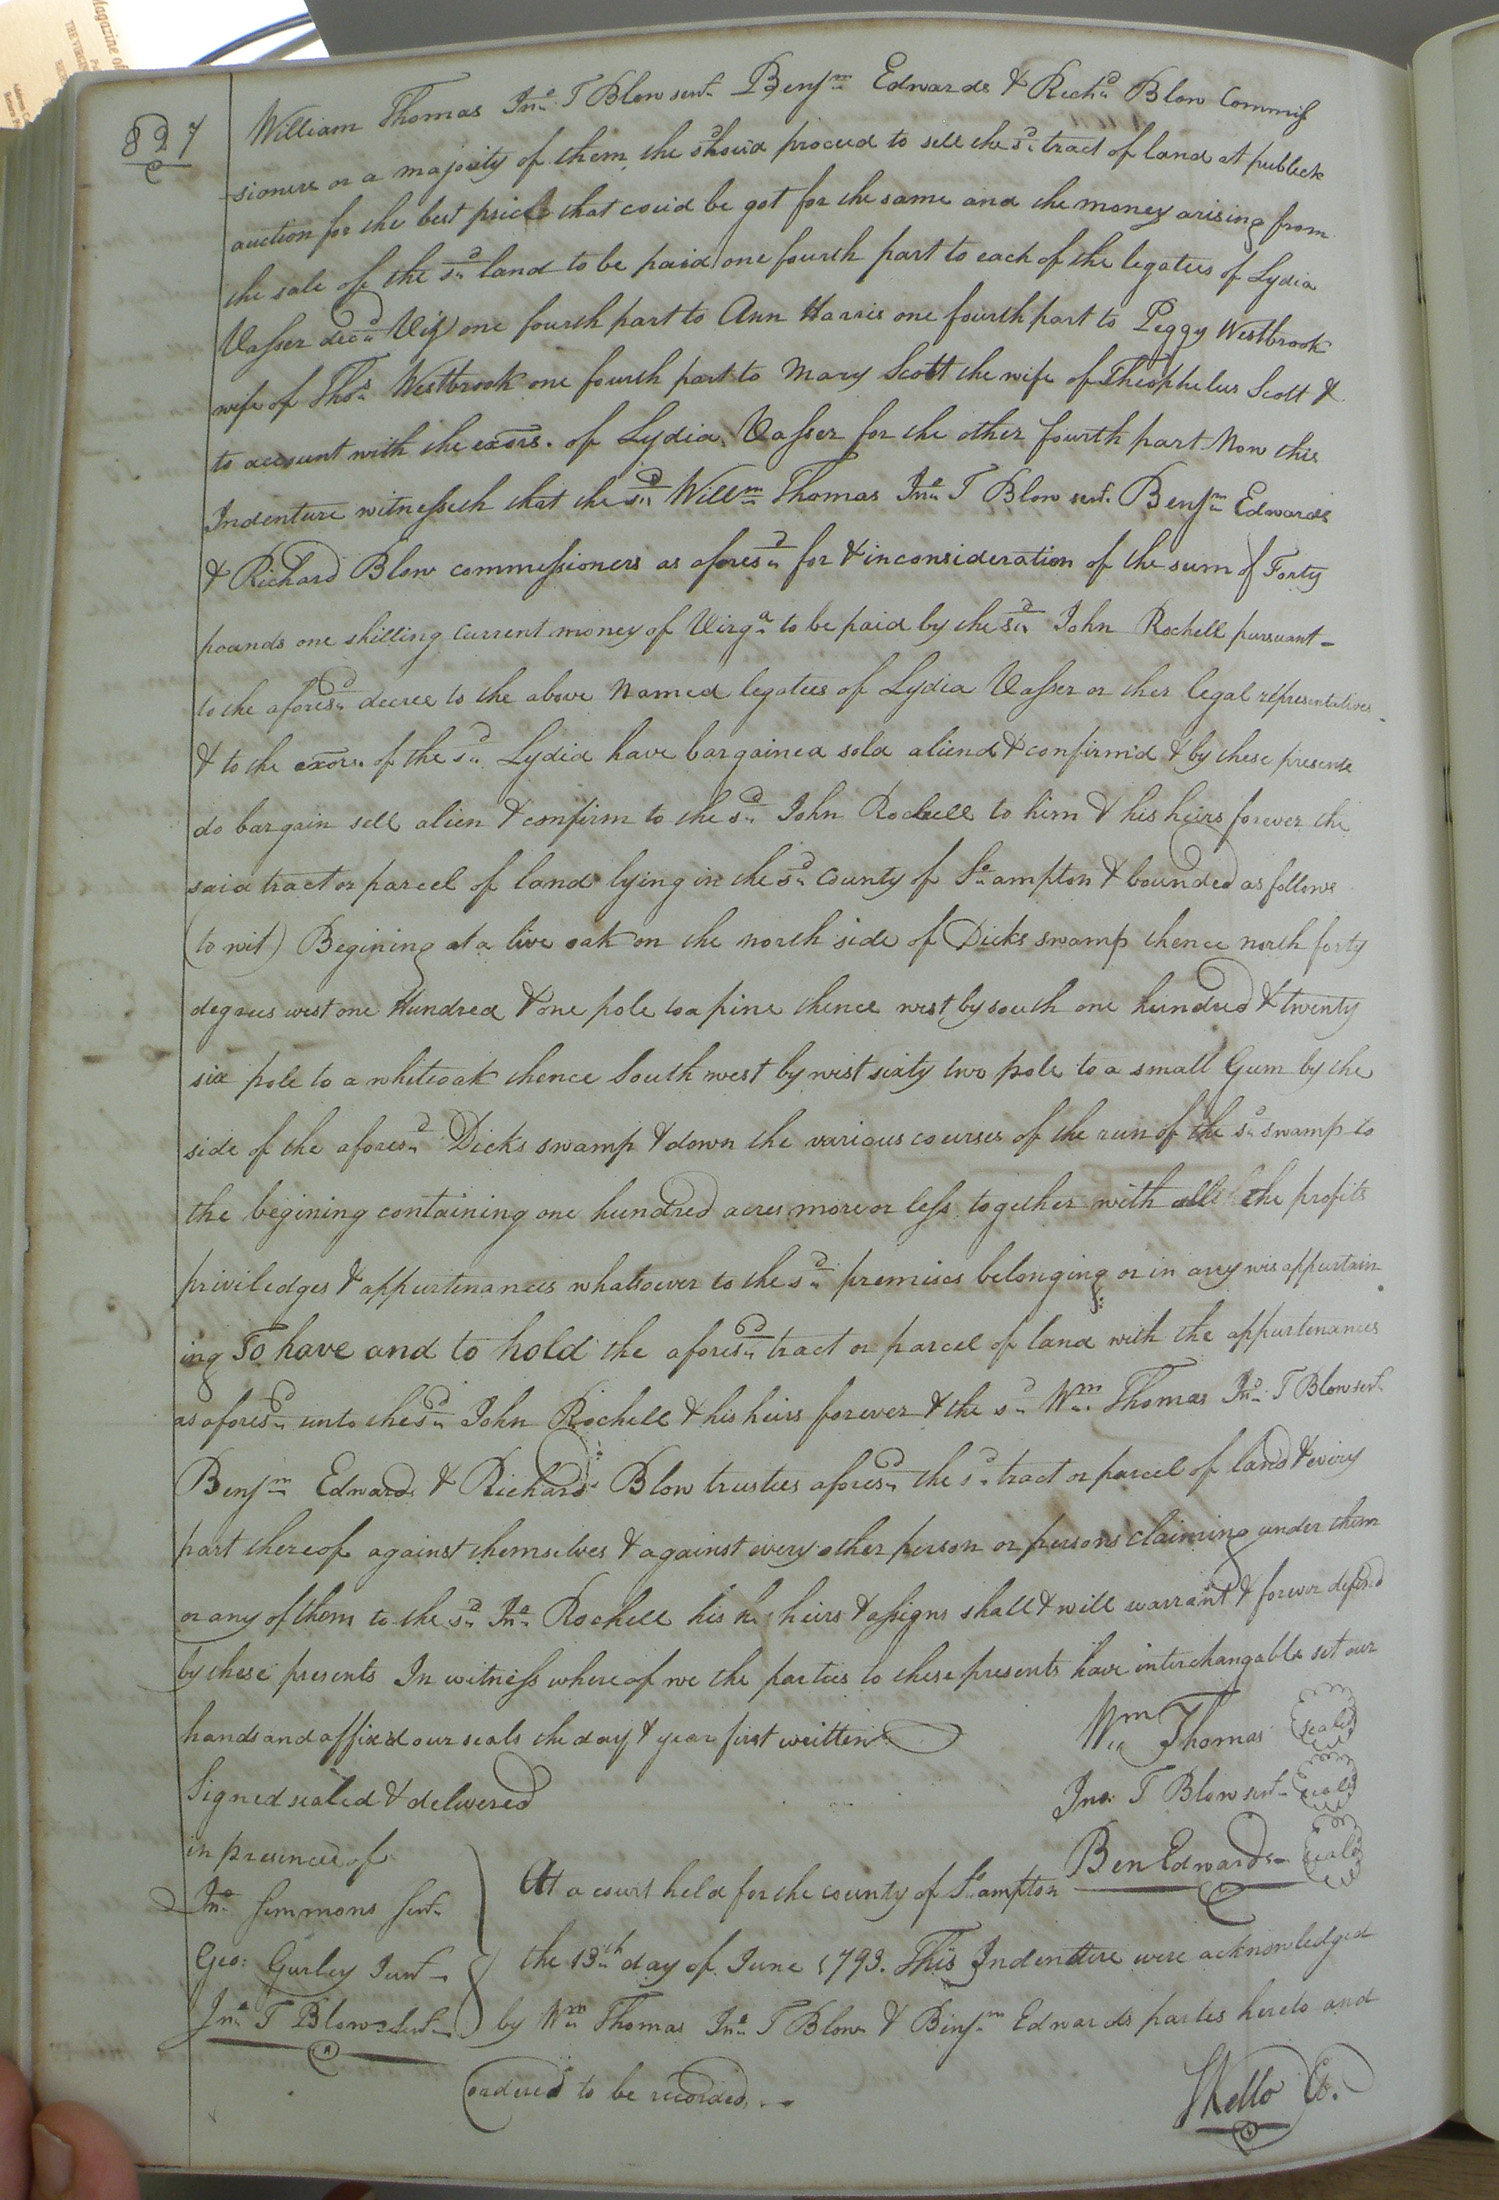 Magazine of
827
William Thomas Jno. T Blow senr. Benjm. Edwards & Richd. Blow Commis
sioners or a majority of them the should proceed to sell the sd. tract of land at publick
auction for the best price that could be got for the same and the money arising from
the sale of the sd. land to be paid one fourth part to each of the legatees of Lydia
Vasser decd. Viz) one fourth part to Ann Harris one fourth part to Peggy Westbrook
wife of Thos. Westbrook one fourth part to Mary Scott the wife of Theophelus Scott &
to account with the exors. of Lydia Vasser for the other fourth part Now this
Indenture witnesseth that the sd. Willm. Thomas Jno. T Blow senr. Benjm. Edwards
& Richard Blow commissioners as aforesd. for & inconsideration of the sum of Forty
pounds one shilling Current money of Virga. to be paid by the sd. John Rochell pursuant
to the aforesd. decree to the above Named legatees of Lydia Vasser or ther legal representatives
& to the exors. of the sd. Lydia have bargained sold aliend & confirm'd & by these presents
do bargain sell alien & confirm to the sd. John Rochell to him & his heirs forever the
said tract or parcel of land lying in the sd. County of So.ampton & bounded as follows
(to wit) Begining at a live oak on the north side of Dicks swamp thence north forty
degrees west one Hundred & one pole to a pine thence west by south one hundred & twenty
six pole to a whiteoak thence South west by west sixty two pole to a small Gum by the
side of the aforesd. Dicks swamp & down the various courses of the run of the sd. swamp to
the begining containing one hundred acres more or less together with all the profits
priviledges & appurtenances whatsoever to the sd. premises belonging or in any wis appurtain
ing To have and to hold the aforesd. tract or parcel of land with the appurtenances
as aforesd. unto the sd. John Rochell & his heirs forever & the sd. Wm. Thomas Jno. T Blow senr.
Benjm. Edwards & Richard Blow trustees aforesd. the sd. tract or parcel of land & every
part thereof against themselves & against every other person or persons claiming under them
or any of them to the sd. Jno. Rochell his he heirs & assigns shall & will warrant & forever defend
by these presents In witness whereof we the parties to these presents have interchangable set our
hands and affixed our seals the day & year first written
Wm. Thomas seal
Signed sealed & delivered
Jno. T Blow senr. seal
in presence of
Ben Edwards seal
Jno. Simmons Senr.
Geo: Gurley Junr.
Jno. T Blow Senr.
At a court held for the county of So.ampton
the 13th. day of June 1793. This Indenture were acknowledged
by Wm. Thomas Jno. T Blow & Benjm. Edwards parties hereto and
ordered to be recorded